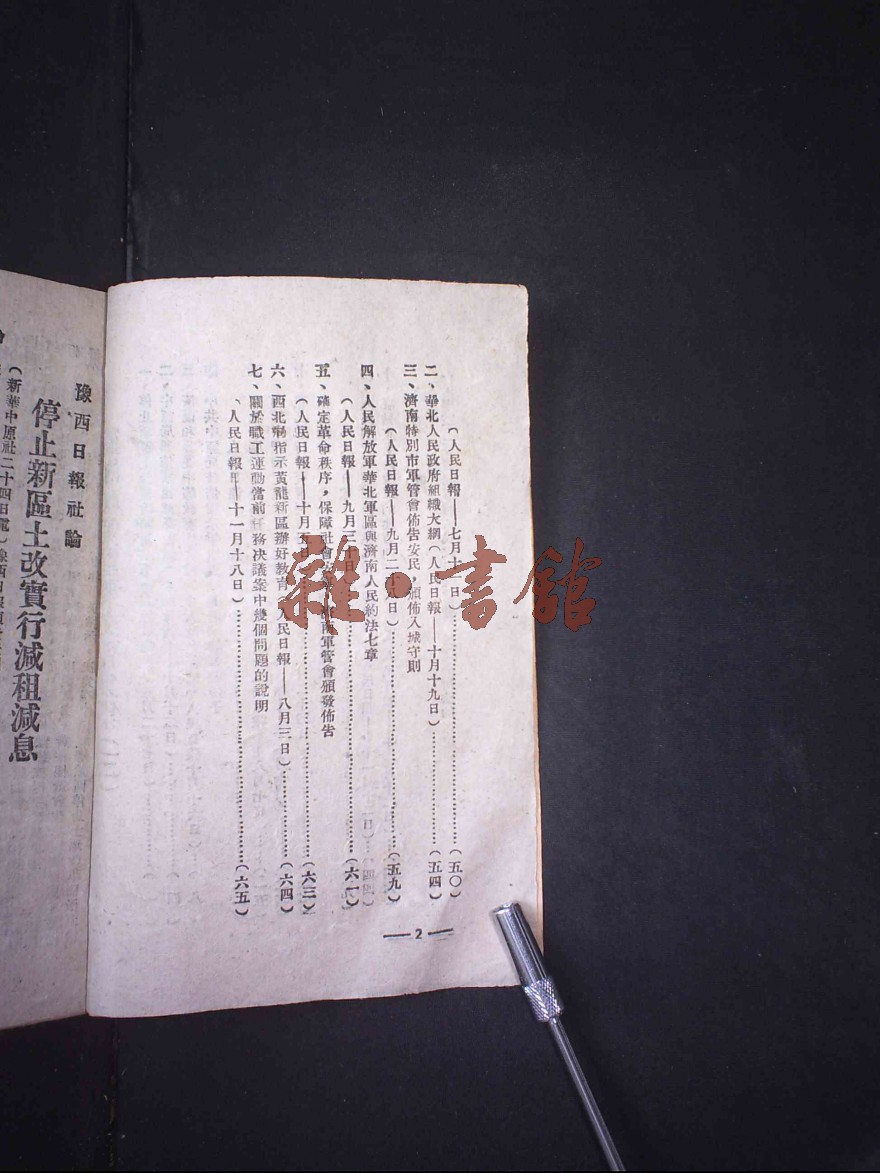 （人民日報——七月十一日）……（五〇）
二、華北人民政府組織大綱（人民日報——十月十九日）……（五四）
三、濟南特別市軍管會佈告安民，頒佈入城守則
（人民日報——九月二 日）……（五九）
四、人民解放軍華北軍區與濟南人民約法七章
（人民日報——九月三十日）……（六一）
五、確定革命秩序，保障社會安 軍管會頒發佈告
（人民日報——十月五日）……（六三）
六、西北局指示黃龍新區辦好教育（人民日報——八月三日）……（六四）
七、關於職工運動當前任務决議案中幾個問題的說明
（人民日報——十一月十八日）……（六五）
— 2 —
豫西日報社論
停止新區土改實行減租減息
（新華中原社二十四日電）
雜·書館